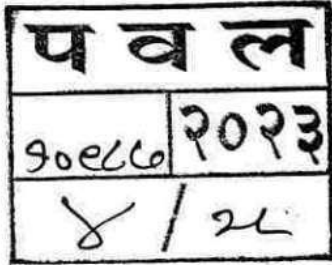 प व ल
१०९८७ २०२३
४ /